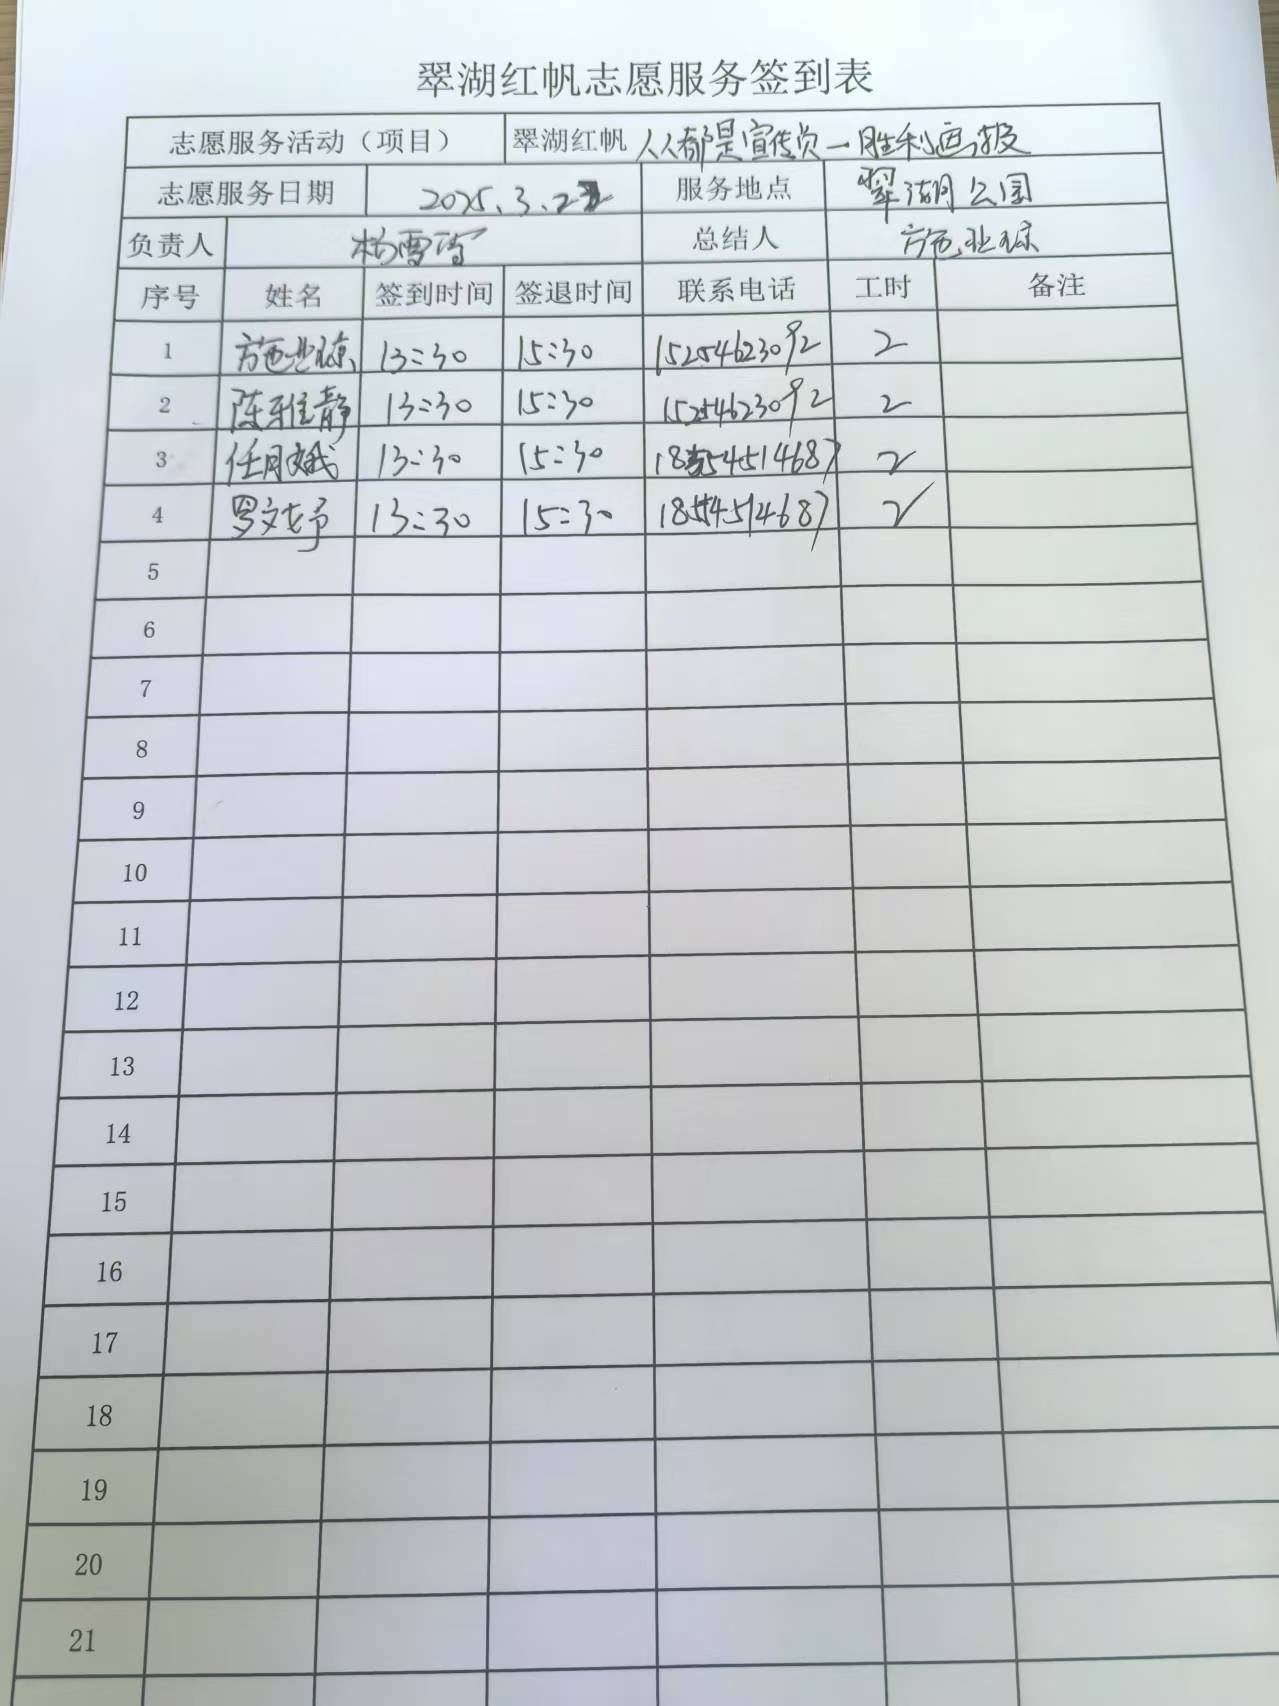 翠湖红帆志愿服务签到表
志愿服务活动（项目） 翠湖红帆 人人都是宣传员—胜利画报
志愿服务日期 2025.3.22 服务地点 翠湖公园
负责人 杨雪 总结人
序号 姓名 签到时间 签退时间 联系电话 工时 备注
1 13:30 15:30 15254623092 2
2 陈雅静 13:30 15:30 15254623092 2
3 任月娥 13:30 15:30 18554514687 2
4 罗文 13:30 15:30 18554514687 2
5
6
7
8
9
10
11
12
13
14
15
16
17
18
19
20
21